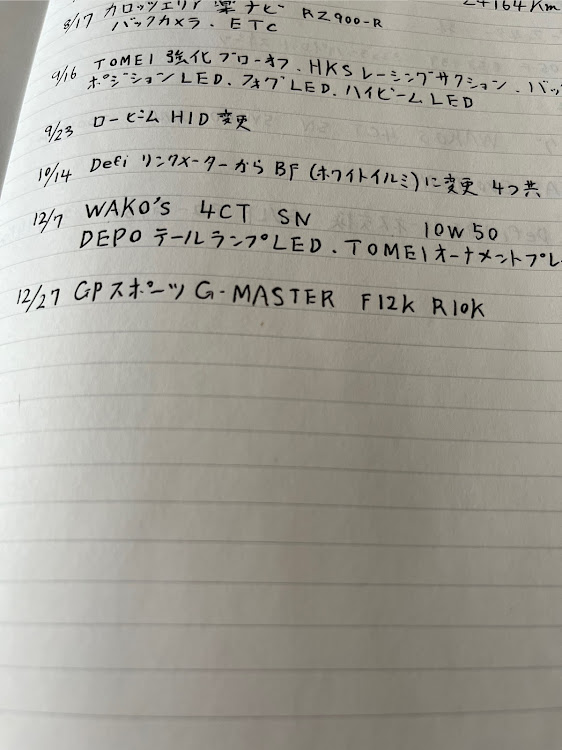 24164Km
8/17 カロッツェリア 楽ナビ RZ900-R
バックカメラ、ETC
9/16 TOMEI 強化ブローオフ、HKSレーシングサクション、バッ
ポジションLED、フォグLED、ハイビームLED
9/23 ロービームHID変更
10/14 Defi リンクメーターからBF(ホワイトイルミ)に変更 4つ共
12/7 WAKO'S 4CT SN 10W50
DEPOテールランプLED、TOMEIオーナメントプレ
12/27 GPスポーツ G-MASTER F12K R10K